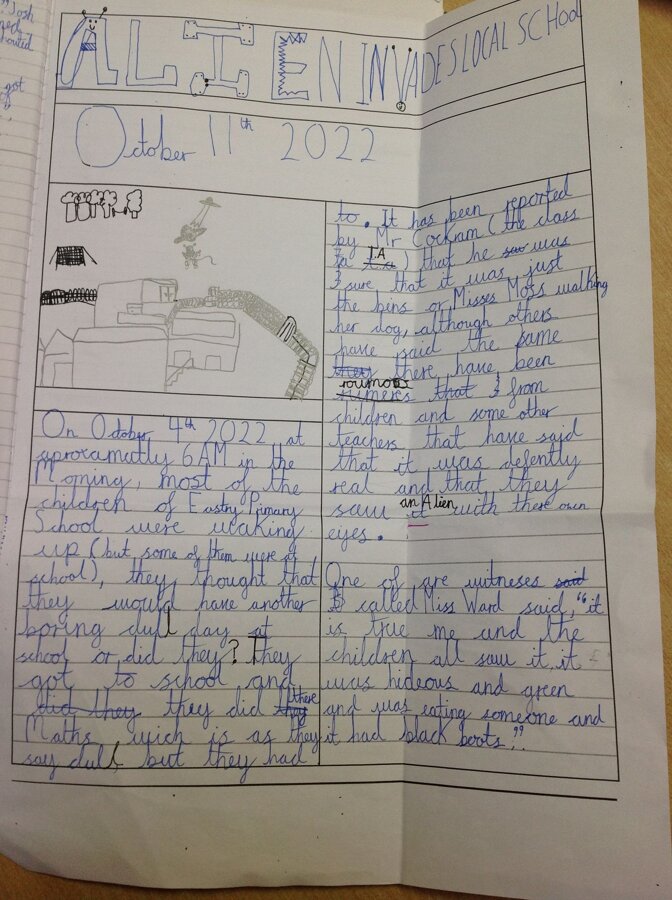 Josh
ned
houted
got
of
ALIEN INVADES LOCAL SCHOOL
October 11th 2022
On October 4th 2022 at
aproxamutly 6AM in the
Morning, most of the
children of Eastry Primary
School were waking
up (but some of them were at
school), they thought that
they would have another
boring dull day at
school or did they? They
got to school and
did they they did there
Maths wich is as they
say dull, but they had
to. It has been reported
by Mr Cockram (the class
ta T.A) that he was
sure that it was just
the bens or Misses Moss walking
her dog, although others
have said the same
they there have been
roumors
rumers that from
children and some other
teachers that have said
that it was defently
real and that they
saw it an Alien with there own
eyes.
One of are witneses said
called Miss Ward said, "it
is true me and the
children all saw it it
was hideous and green
and was eating someone and
it had black boots."